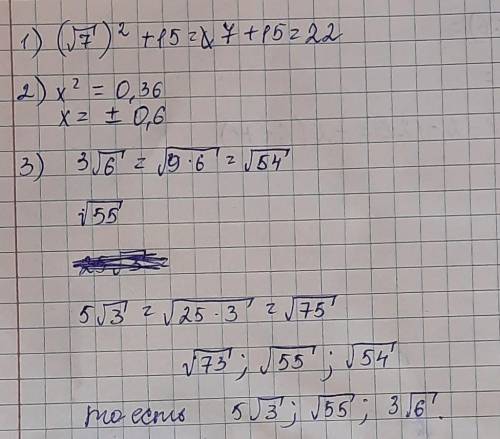 1) (√7)² + 15 = 7 + 15 = 22
2) x² = 0,36
x = ± 0,6
3) 3√6 = √9·6 = √54
√55
5√3 = √25·3 = √75
√73; √55; √54
то есть 5√3; √55; 3√6.